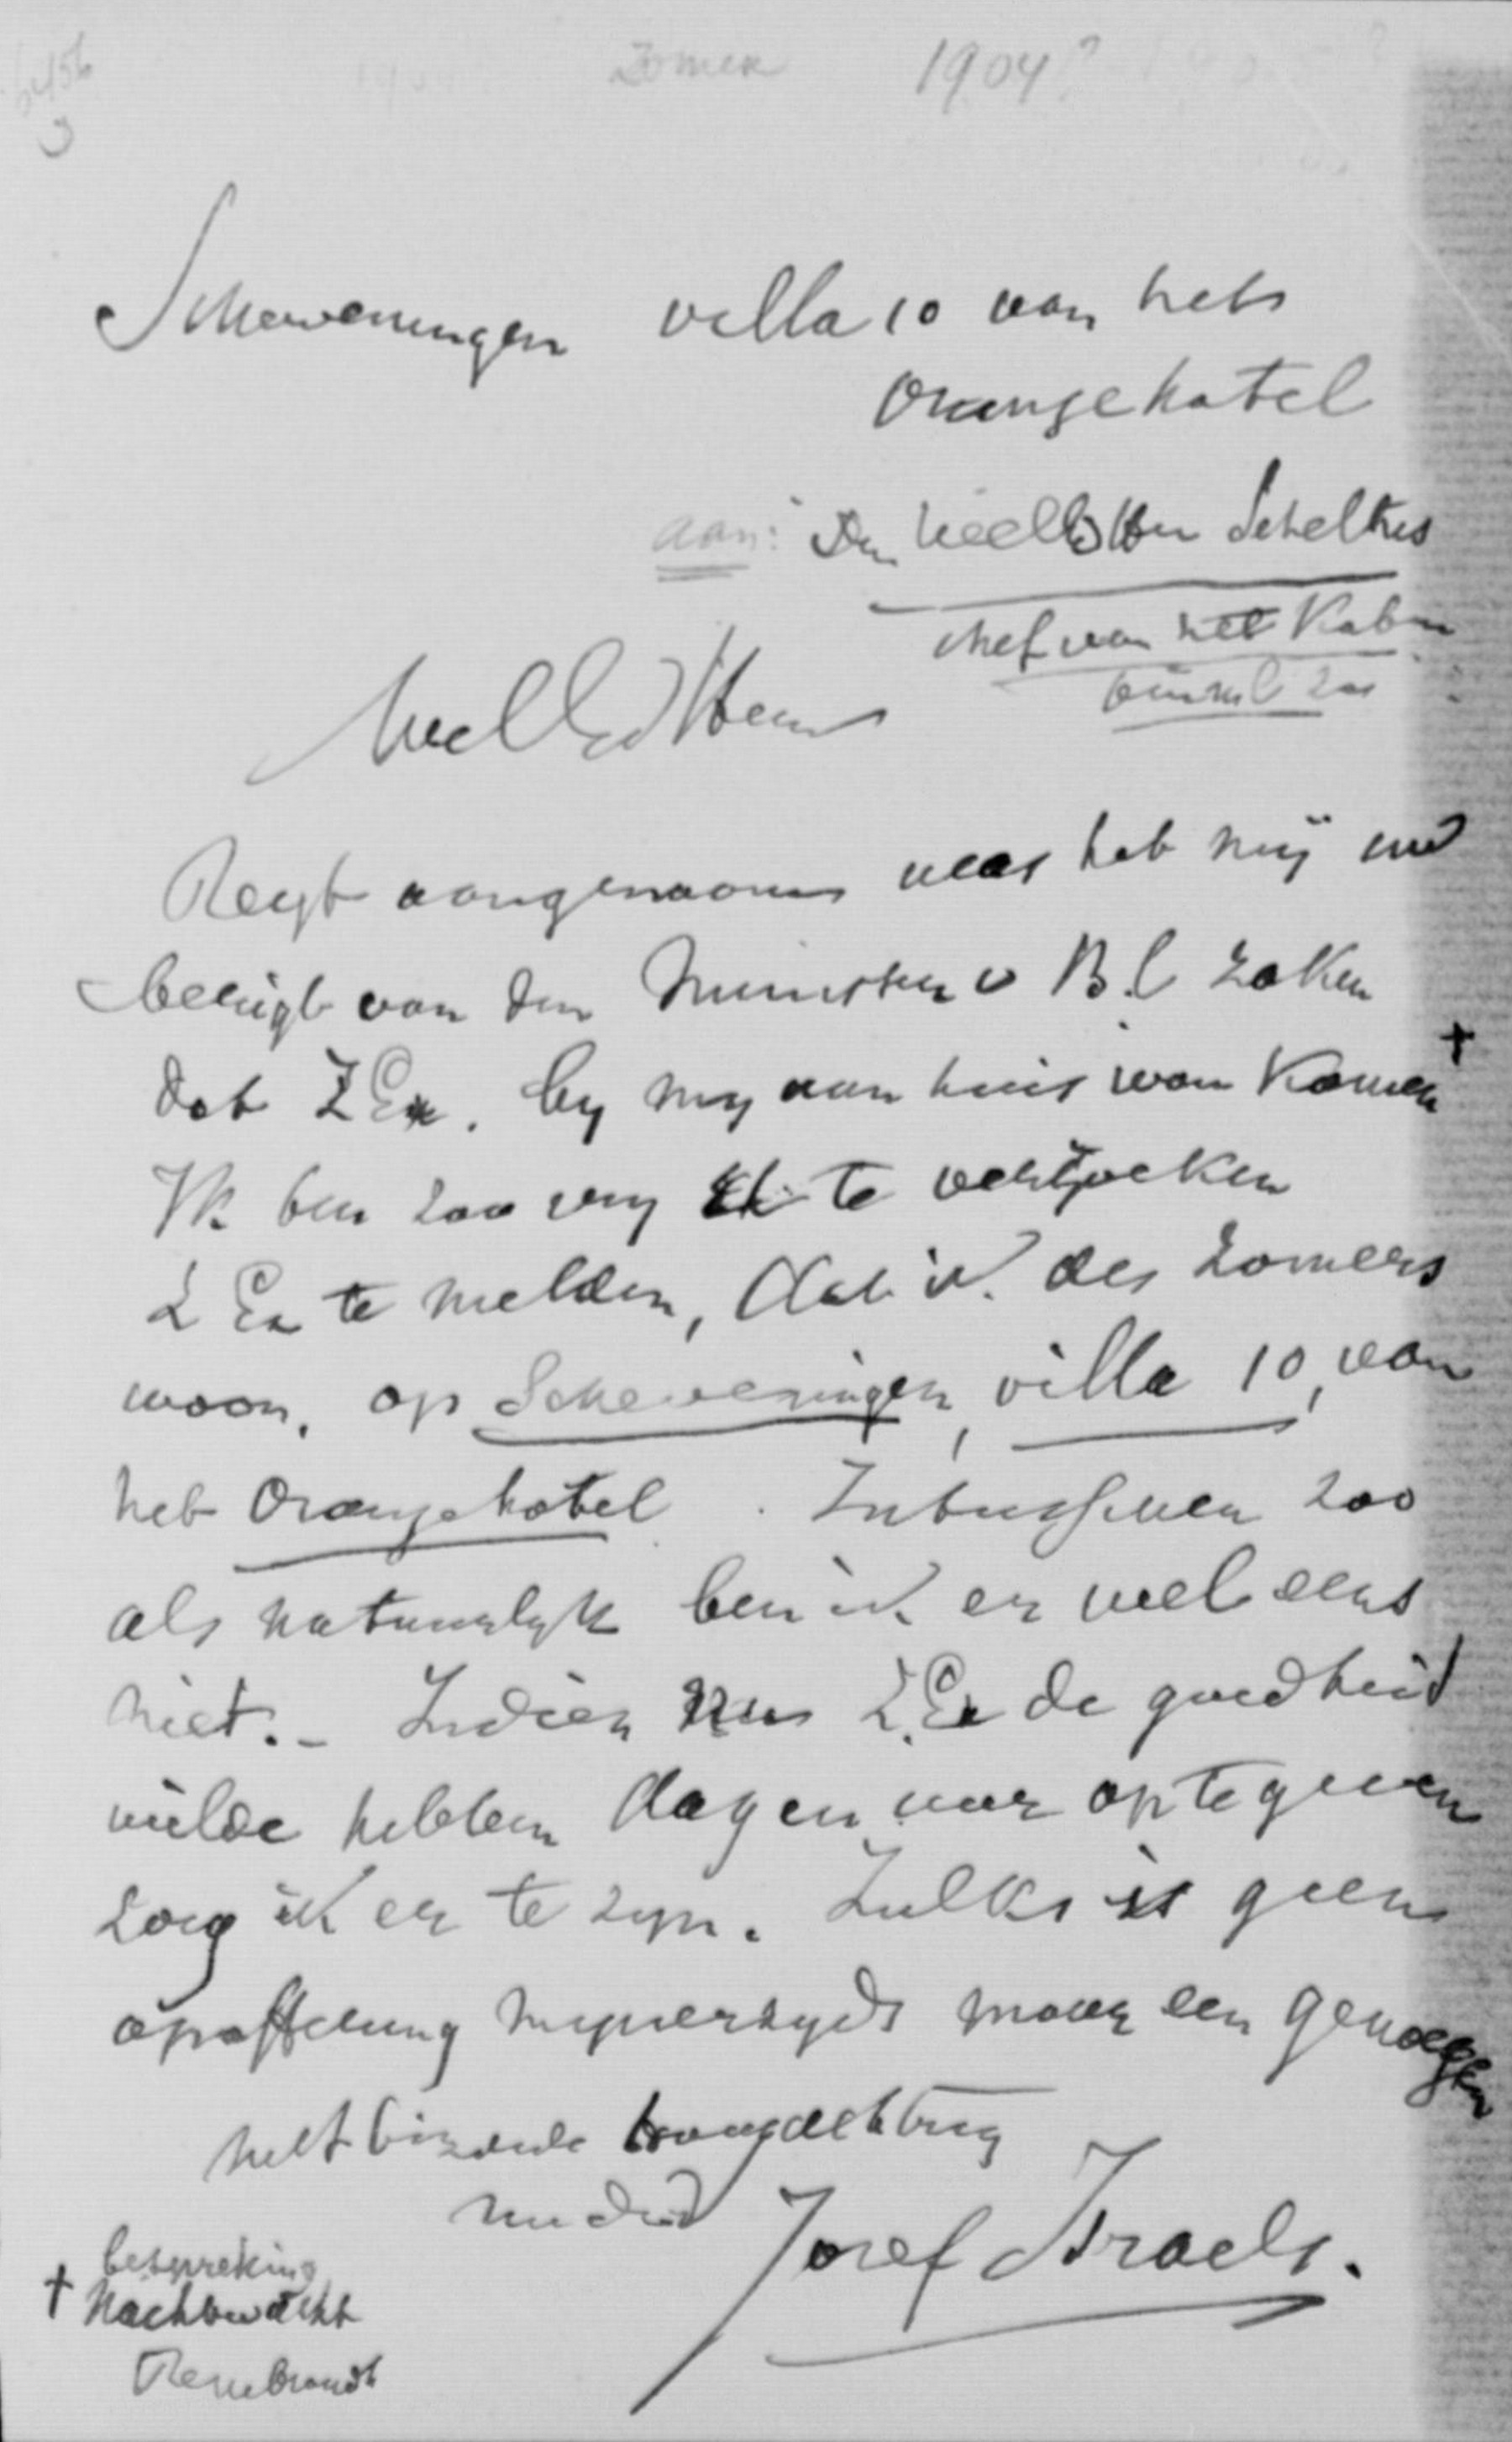 Zomer 1904?
Scheveningen villa 10 van het
Oranjehotel
aan: Den WelEd Heer Scheltus
chef van het Kabin
WelEd Heer
Regt aangenaam was het mij uw
berigt van den Minister v B.l zaken
dat Z Ex. by my aan huis wou komen †
Ik ben zoo vry te verzoeken
Z Ex te melden, dat ik des zomers
woon, op Scheveningen, villa 10, van
het Oranjehotel. Intusschen zoo
als natuurlyk ben ik er wel eens
niet. - Indien nu Z.Ex de goedheid
wilde hebben dag en uur op te geven
zorg ik er te zyn. Zulks is geen
opoffering mynerzyds maar een genoegen
met byzonde hoogachting
uw dien
Jozef Israels.
† bespreking
Nachtwacht
Rembrandt